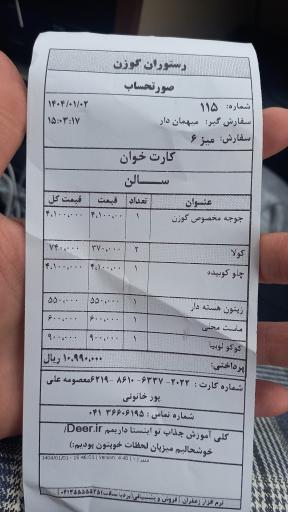 رستوران گوزن
صورتحساب
شماره: ۱۱۵ ۱۴۰۴/۰۱/۰۲
سفارش گیر: میهمان دار ۱۵:۰۳:۱۷
سفارش: میز ۶
کارت خوان
سالن
عنوان تعداد قیمت قیمت کل
جوجه مخصوص گوزن ۱ ۴،۱۰۰،۰۰۰ ۴،۱۰۰،۰۰۰
کولا ۲ ۳۷۰،۰۰۰ ۷۴۰،۰۰۰
چلو کوبیده ۱ ۴،۱۰۰،۰۰۰ ۴،۱۰۰،۰۰۰
زیتون هسته دار ۱ ۵۵۰،۰۰۰ ۵۵۰،۰۰۰
ماست محلی ۱ ۶۰۰،۰۰۰ ۶۰۰،۰۰۰
کوکو لوبیا ۱ ۹۰۰،۰۰۰ ۹۰۰،۰۰۰
پرداختی: ۱۰،۹۹۰،۰۰۰ ریال
شماره کارت : ۲۰۲۲-۶۳۳۷-۸۶۱۰-۶۲۱۹معصومه علی
پور خاتونی
شماره تماس : ۳۶۶۰۶۱۹۵ ۰۴۱
کلی آموزش جذاب تو اینستا داریمم Deer.ir/
خوشحالیم میزبان لحظات خوبتون بودیم:)